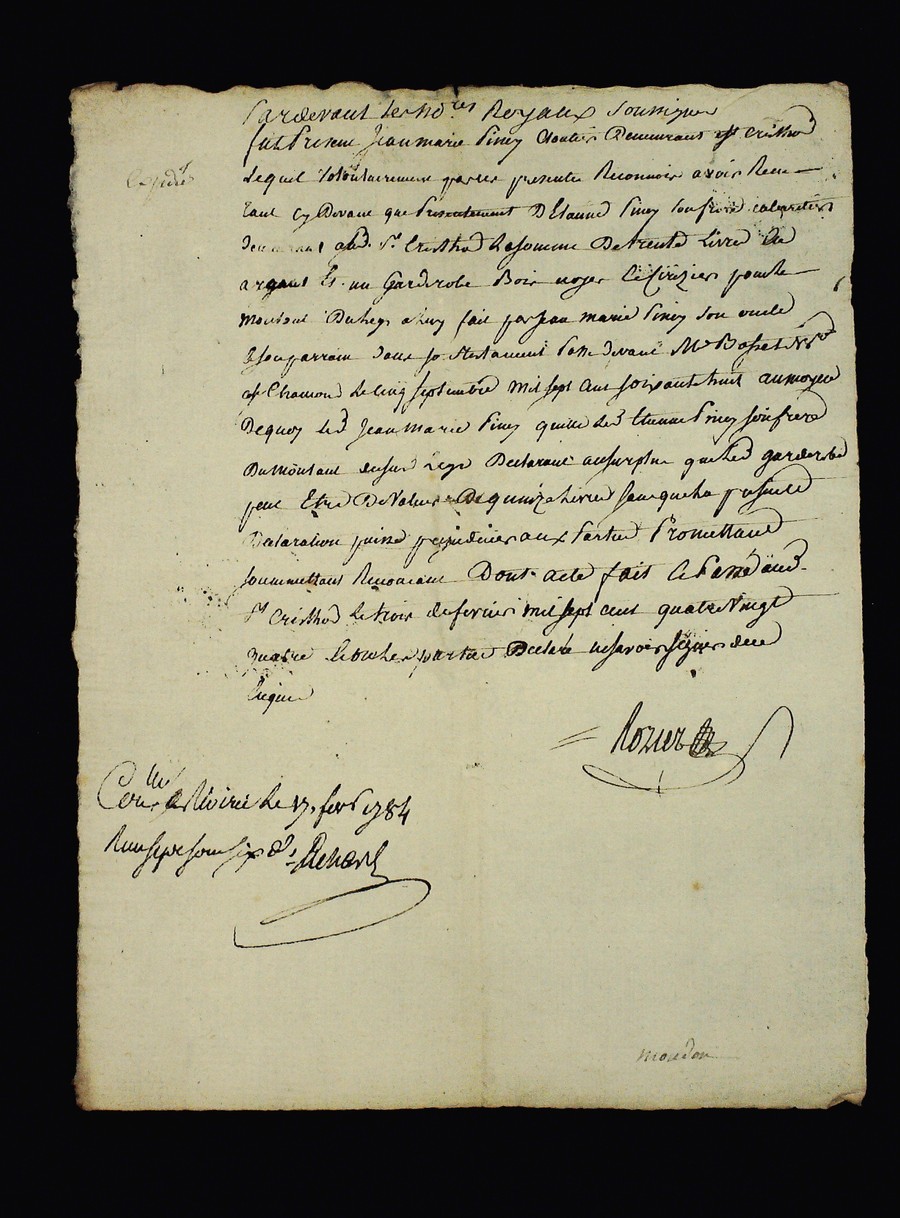 Pardevant les no.res Royaux Soussignes
fut Present Jean marie Piney Cloutier Demeurant a St Cristhod
Lequel Volontairement par ces presentes Reconnois avoir Receu
tant cy Devant que Presentement D'Etienne Piney Son frere
aud. St. Cristhod La somme De trente Livre En
argant Et un Garderobe Bois noyer Cerizier pour le
montant Du legs a luy fait par Jean marie Piney Son oncle
Et son parrain dans Son testament Passé devant Me Bosset No.re
a St Chamond Le cinq septembre mil sept cent soixante huit aumoyen
De quoy led. Jean Marie Piney quitte led. Etienne Piney son frere
Du montant dusus. Legs Declarant ausurplus que led. garderobe
peut Etre De Valeur De quinze livres sans que la presente
Declaration puisse prejudicier aux Parties Promettant
soummettant Renoncant Dont acte fait Et Passé aud.
St Cristhod le trois de fevrier mil sept cent quatre Vingt
quatre Les parties Declaré ne savoir signer de ce
Enquis
Rozier
Con.llé a Rivirie Le 17. fevr 1784
Reçu sols six d.s Renard
mondon